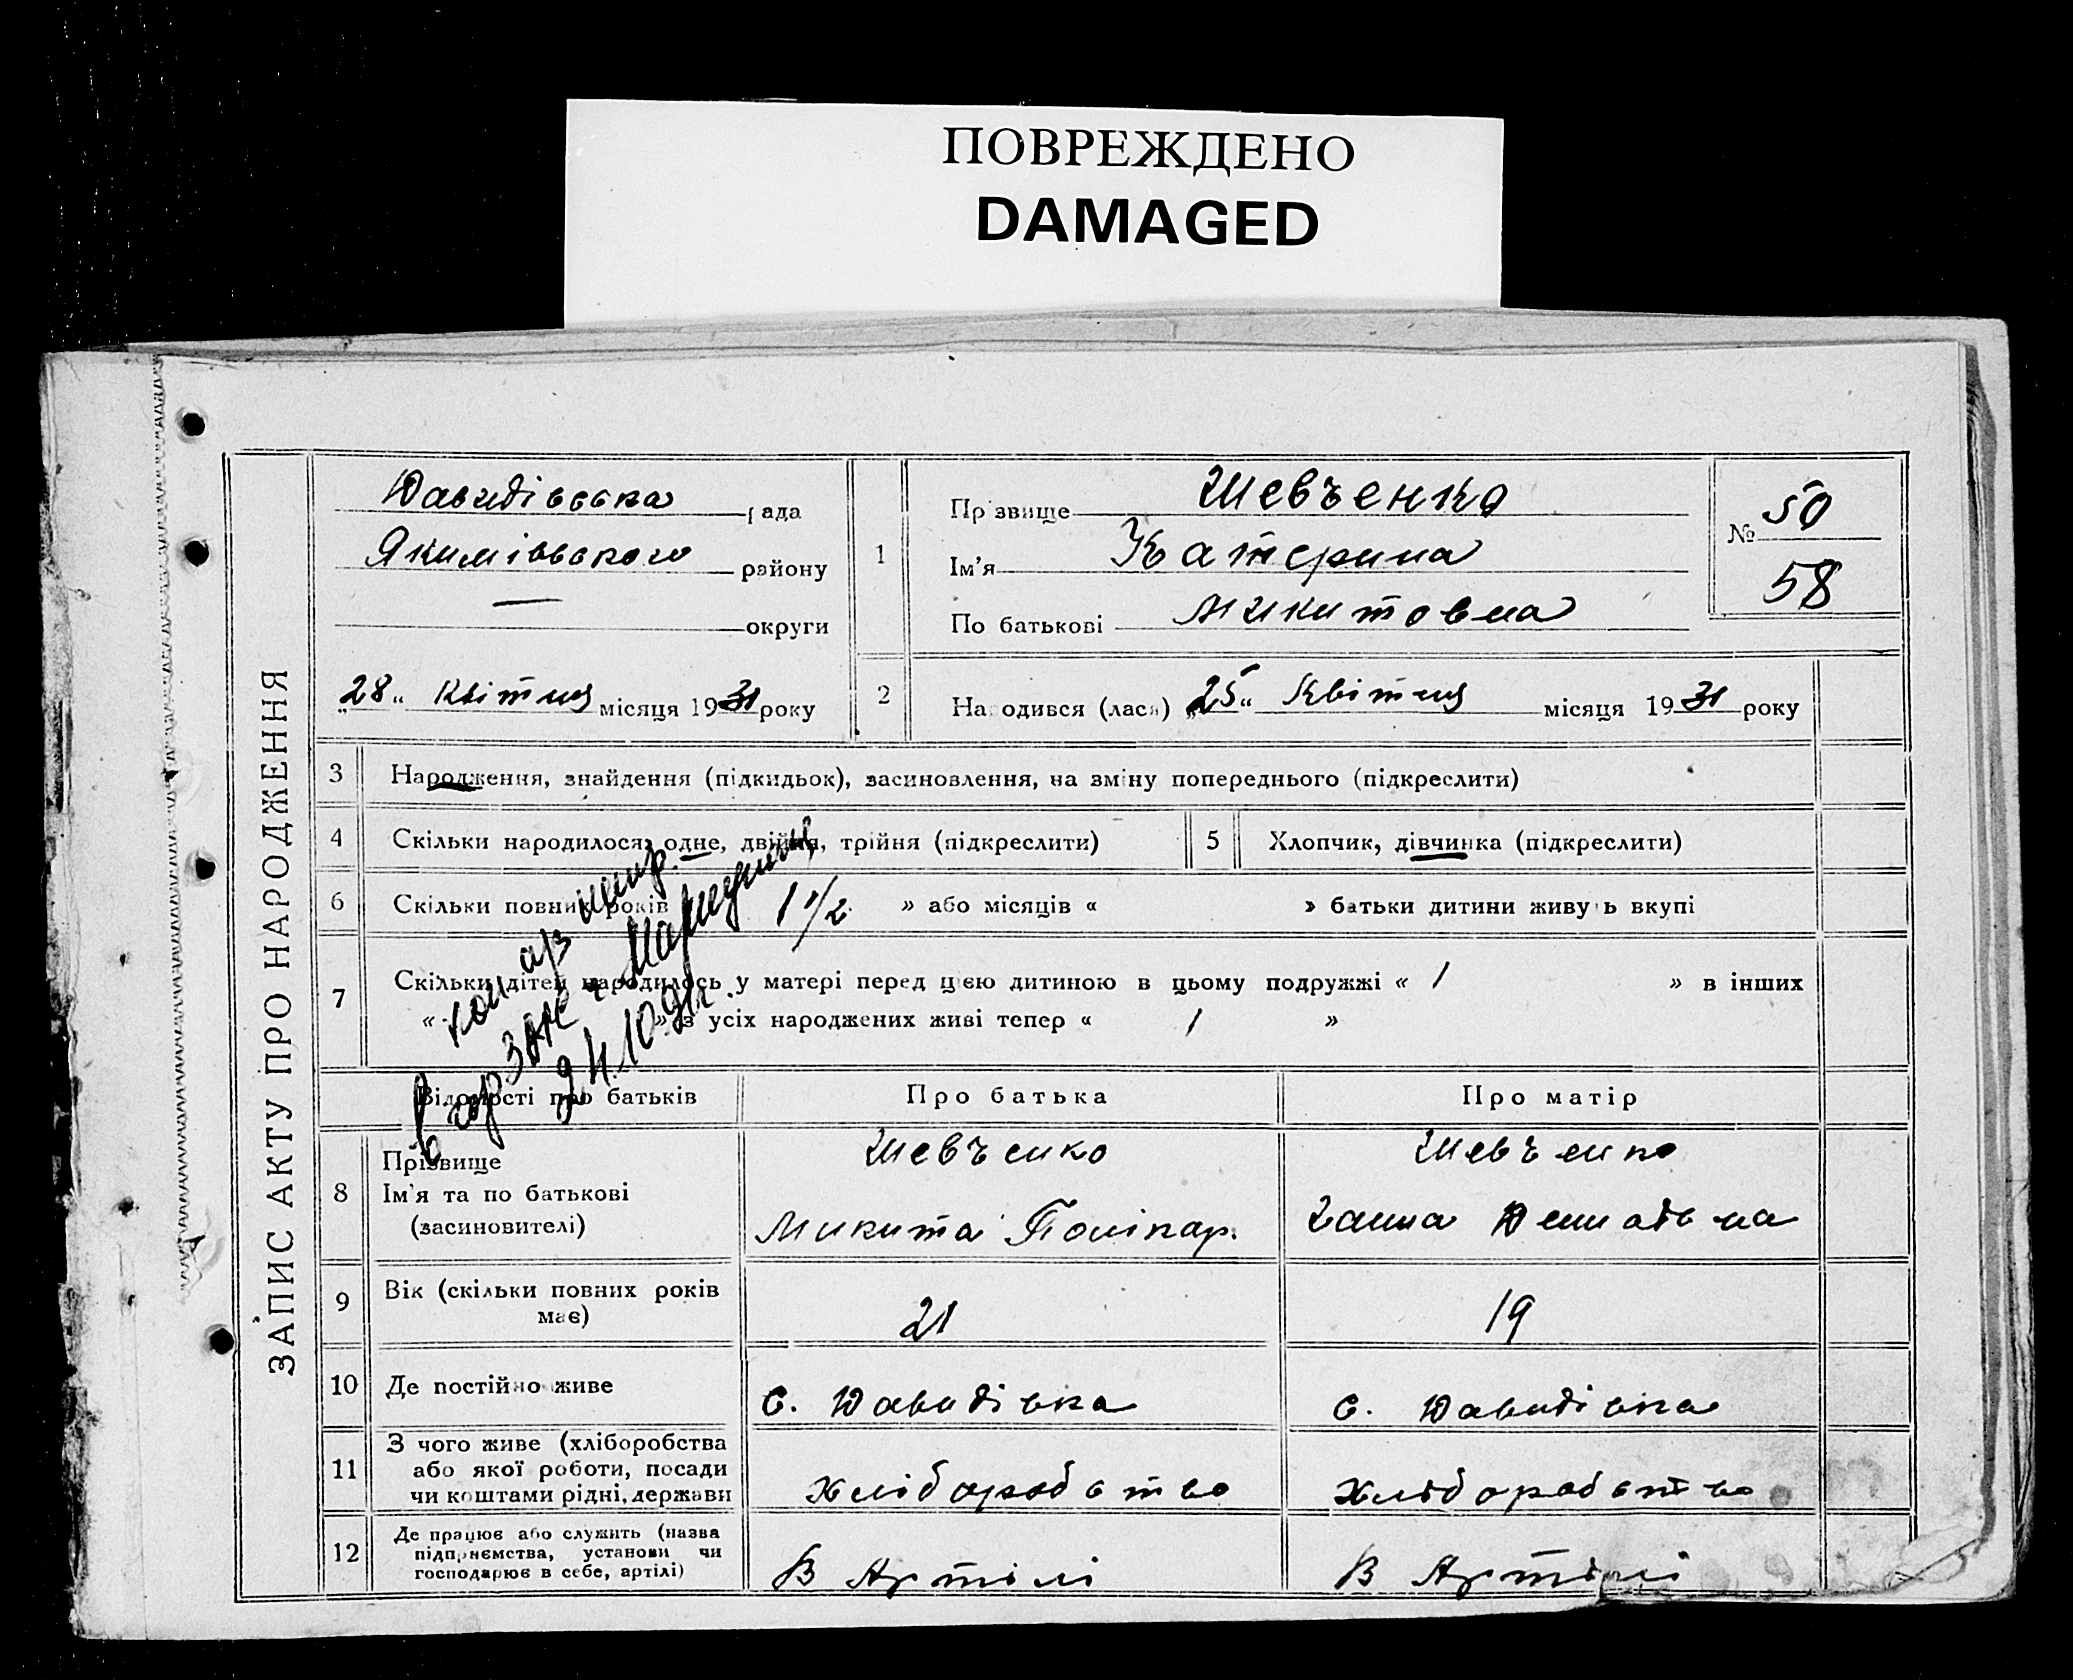 ПОВРЕЖДЕНО
DAMAGED
ЗАПИС АКТУ ПРО НАРОДЖЕННЯ
Давидівська рада
Якимівського району
— округи
„28“ квітня місяця 1931 року
1
Прізвище Шевченко
Ім'я Катерина
По батькові Микитовна
№ 50
58
2 Народився (лася) „25“ Квітня місяця 1931 року
3 Народження, знайдення (підкидьок), засиновлення, на зміну попереднього (підкреслити)
4 Скільки народилося: одне, двійня, трійня (підкреслити)
5 Хлопчик, дівчинка (підкреслити)
6 Скільки повних років 1 1/2 » або місяців « » батьки дитини живуть вкупі
7 Скільки дітей народилось у матері перед цією дитиною в цьому подружжі « 1 » в інших
« » з усіх народжених живі тепер « 1 »
24.10.91г.
Відомості про батьків Про батька Про матір
8 Прізвище Шевченко Шевченко
Ім'я та по батькові Микита Полікар. Ганна
(засиновителі)
9 Вік (скільки повних років має) 21 19
10 Де постійно живе с. Давидівка с. Давидівка
11 З чого живе (хліборобства
або якої роботи, посади
чи коштами рідні, держави хліборобство хліборобство
12 Де працює або служить (назва
підприємства, установи чи
господарює в себе, артілі) В Артілі В Артілі